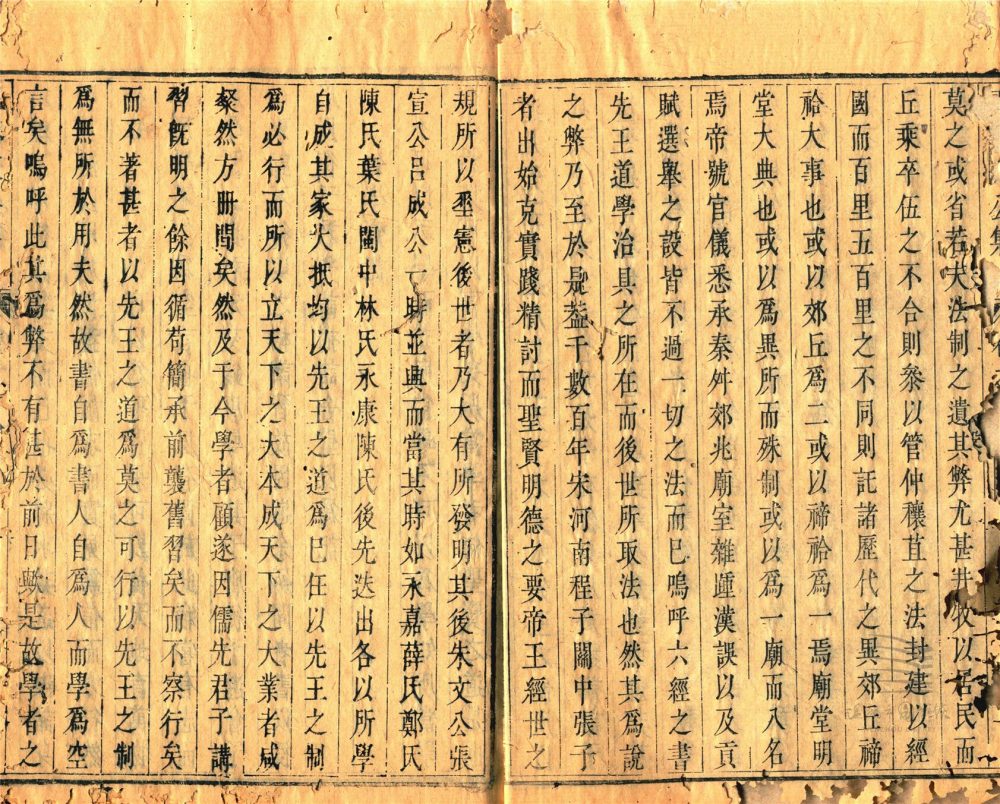 莫之或省若夫法制之遺其弊尤甚井牧以居民而
丘乘卒伍之不合則叅以管仲穰苴之法封建以經
國而百里五百里之不同則託諸歷代之異郊丘禘
祫大事也或以郊丘爲二或以禘祫爲一焉廟堂明
堂大典也或以爲異所而殊制或以爲一廟而八名
焉帝號官儀悉承秦舛郊兆廟室雜踵漢誤以及貢
賦選舉之設皆不過一切之法而巳嗚呼六經之書
先王道學治具之所在而後世所取法也然其爲說
之弊乃至於是葢千數百年宋河南程子關中張子
者出始克實踐精討而聖賢明德之要帝王經世之
規所以埀憲後世者乃大有所發明其後朱文公張
宣公呂成公一時並興而當其時如永嘉薛氏鄭氏
陳氏葉氏閩中林氏永康陳氏後先迭出各以所學
自成其家大抵均以先王之道爲巳任以先王之制
爲必行而所以立天下之大本成天下之大業者咸
粲然方冊間矣然及于今學者顧遂因儒先君子講
習旣明之餘因循苟簡承前襲舊習矣而不察行矣
而不著甚者以先王之道爲莫之可行以先王之制
爲無所於用夫然故書自爲書人自爲人而學爲空
言矣嗚呼此其爲弊不有甚於前日歟是故學者之